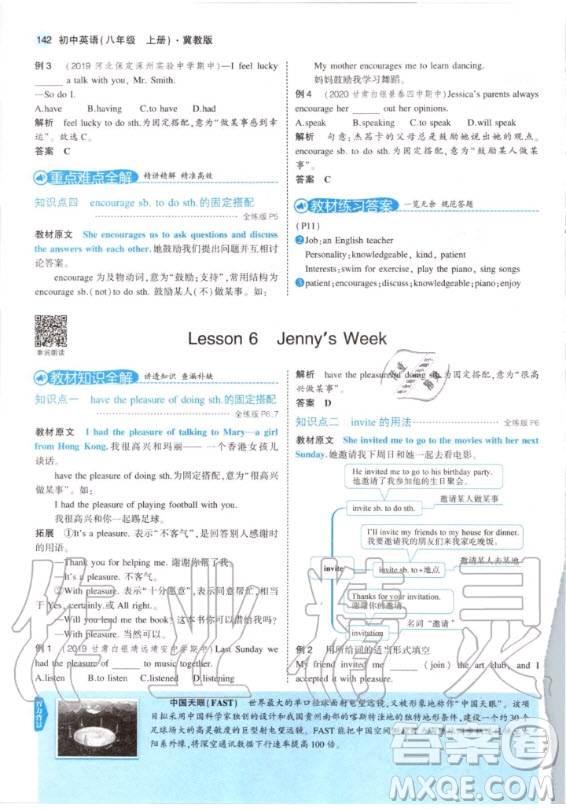 142 初中英语(八年级 上册)·冀教版
例 3 (2019 河北保定涿州实验中学期中)—I feel lucky
______ a talk with you, Mr. Smith.
—So do I.
A.have B.having C.to have D.had
解析 feel lucky to do sth.为固定搭配,意为“做某事感到幸
运”。故选 C。
答案 C
重点难点全解 精讲精解 精准高效
知识点四 encourage sb. to do sth.的固定搭配
全练版 P5
教材原文 She encourages us to ask questions and discuss
the answers with each other.她鼓励我们提出问题并互相讨
论答案。
encourage 为及物动词,意为“鼓励;支持”,常用结构为
encourage sb.(not)to do sth. 鼓励某人(不)做某事。如:
My mother encourages me to learn dancing.
妈妈鼓励我学习舞蹈。
例 4 (2020 甘肃白银景泰四中期中)Jessica's parents always
encourage her ______ out her opinions.
A.speak B.speaking C.to speak D.will speak
解析 句意:杰茜卡的父母总是鼓励她说出她的观点。
encourage sb. to do sth.为固定搭配,意为“鼓励某人做某
事”。
答案 C
教材练习答案 一览无余 规范答题
(P11)
2 Job:an English teacher
Personality:knowledgeable, kind, patient
Interests:swim for exercise, play the piano, sing songs
3 patient;encourages;discuss;knowledgeable;piano
单词朗读
Lesson 6 Jenny's Week
教材知识全解 讲透知识 查漏补缺
知识点一 have the pleasure of doing sth.的固定搭配
全练版 P6、7
教材原文 I had the pleasure of talking to Mary—a girl
from Hong Kong.我很高兴和玛丽—— 一个香港女孩儿
谈话。
have the pleasure of doing sth.为固定搭配,意为“很高兴
做某事”。如:
I had the pleasure of playing football with you.
我很高兴和你一起踢足球。
拓展 ①It's a pleasure. 表示“不客气”,是回答别人感谢时
的用语。
—Thank you for helping me. 谢谢你帮我。
—It's a pleasure. 不客气。
②With pleasure. 表示“十分愿意”,表示同意对方,相当于
Yes, certainly.或 All right.。
—Will you lend me the book? 这本书你可以借给我吗?
—With pleasure. 当然可以。
例 1 (2019 甘肃白银靖远靖安中学期中) Last Sunday we
had the pleasure of ______ to him.
A.listen B.listens C.listened D.listening
解析 have the pleasure of doing sth.为固定搭配,意为“很高
兴做某事”。
答案 D
知识点二 invite 的用法
全练版 P6
教材原文 She invited me to go to the movies with her next
Sunday.她邀请我下周日和她一起看电影。
He invited me to go to his birthday party.
他邀请了我去他的生日聚会。
invite sb. to do sth.
邀请某人做某事
I'll invite my friends to my house for dinner.
我要邀请我的朋友们来我家吃晚饭。
invite
invite sb. to+地点
邀请某人去某地
Thanks for your invitation.
谢谢你的邀请。
invitation
名词“邀请”
例 2 用所给词的适当形式填空
My friend invited me ______ (join) the art club, and I
accepted it with pleasure.
中国天眼(FAST) 世界最大的单口径球面射电望远镜,又被形象地称为“中国天眼”。该
项目拟采用中国科学家独创的设计和我国贵州南部的喀斯特洼地的独特地形条件,建设一个约 30 个
足球场大的高灵敏度的巨型射电望远镜。FAST能把中国空间
阳系外缘,将深空通讯数据下行速率提高 100 倍。
作业精灵
答案圈
MXQE.COM